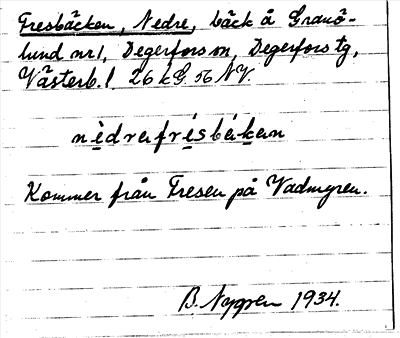 Fresbäcken, Nedre, bäck å Granö-
lund nr 1, Degerfors sn, Degerfors tg,
Västerb. l. 26 k G. 56 NV.
nèdrafrésbékan
Kommer från Fresen på Vadmyren.
B. Nygren 1934.